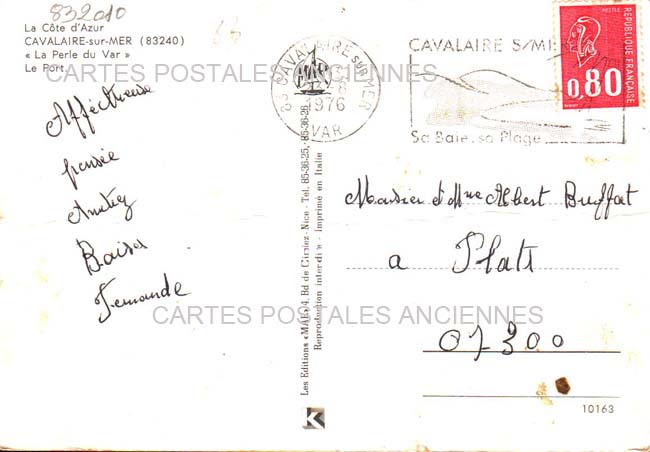 832010
La Côte d'Azur
CAVALAIRE-sur-MER (83240)
« La Perle du Var »
Le Port
CARTES POSTALES ANCIENNES
Affectueuse
pensée
Amitiés
Baiser
Fernande
83 CAVALAIRE SUR MER
1976
VAR
CAVALAIRE S/MER
Sa Baie, sa Plage
RÉPUBLIQUE FRANÇAISE
0,80
Monsieur et Mme Albert Buffat
a Plats
07300
CARTES POSTALES ANCIENNES
Les Editions «MAR» 4, Bd de Cimiez-Nice - Tel. 85-36-25, 85-36-26
Reproduction interdite - Imprimé en Italie
K
10163